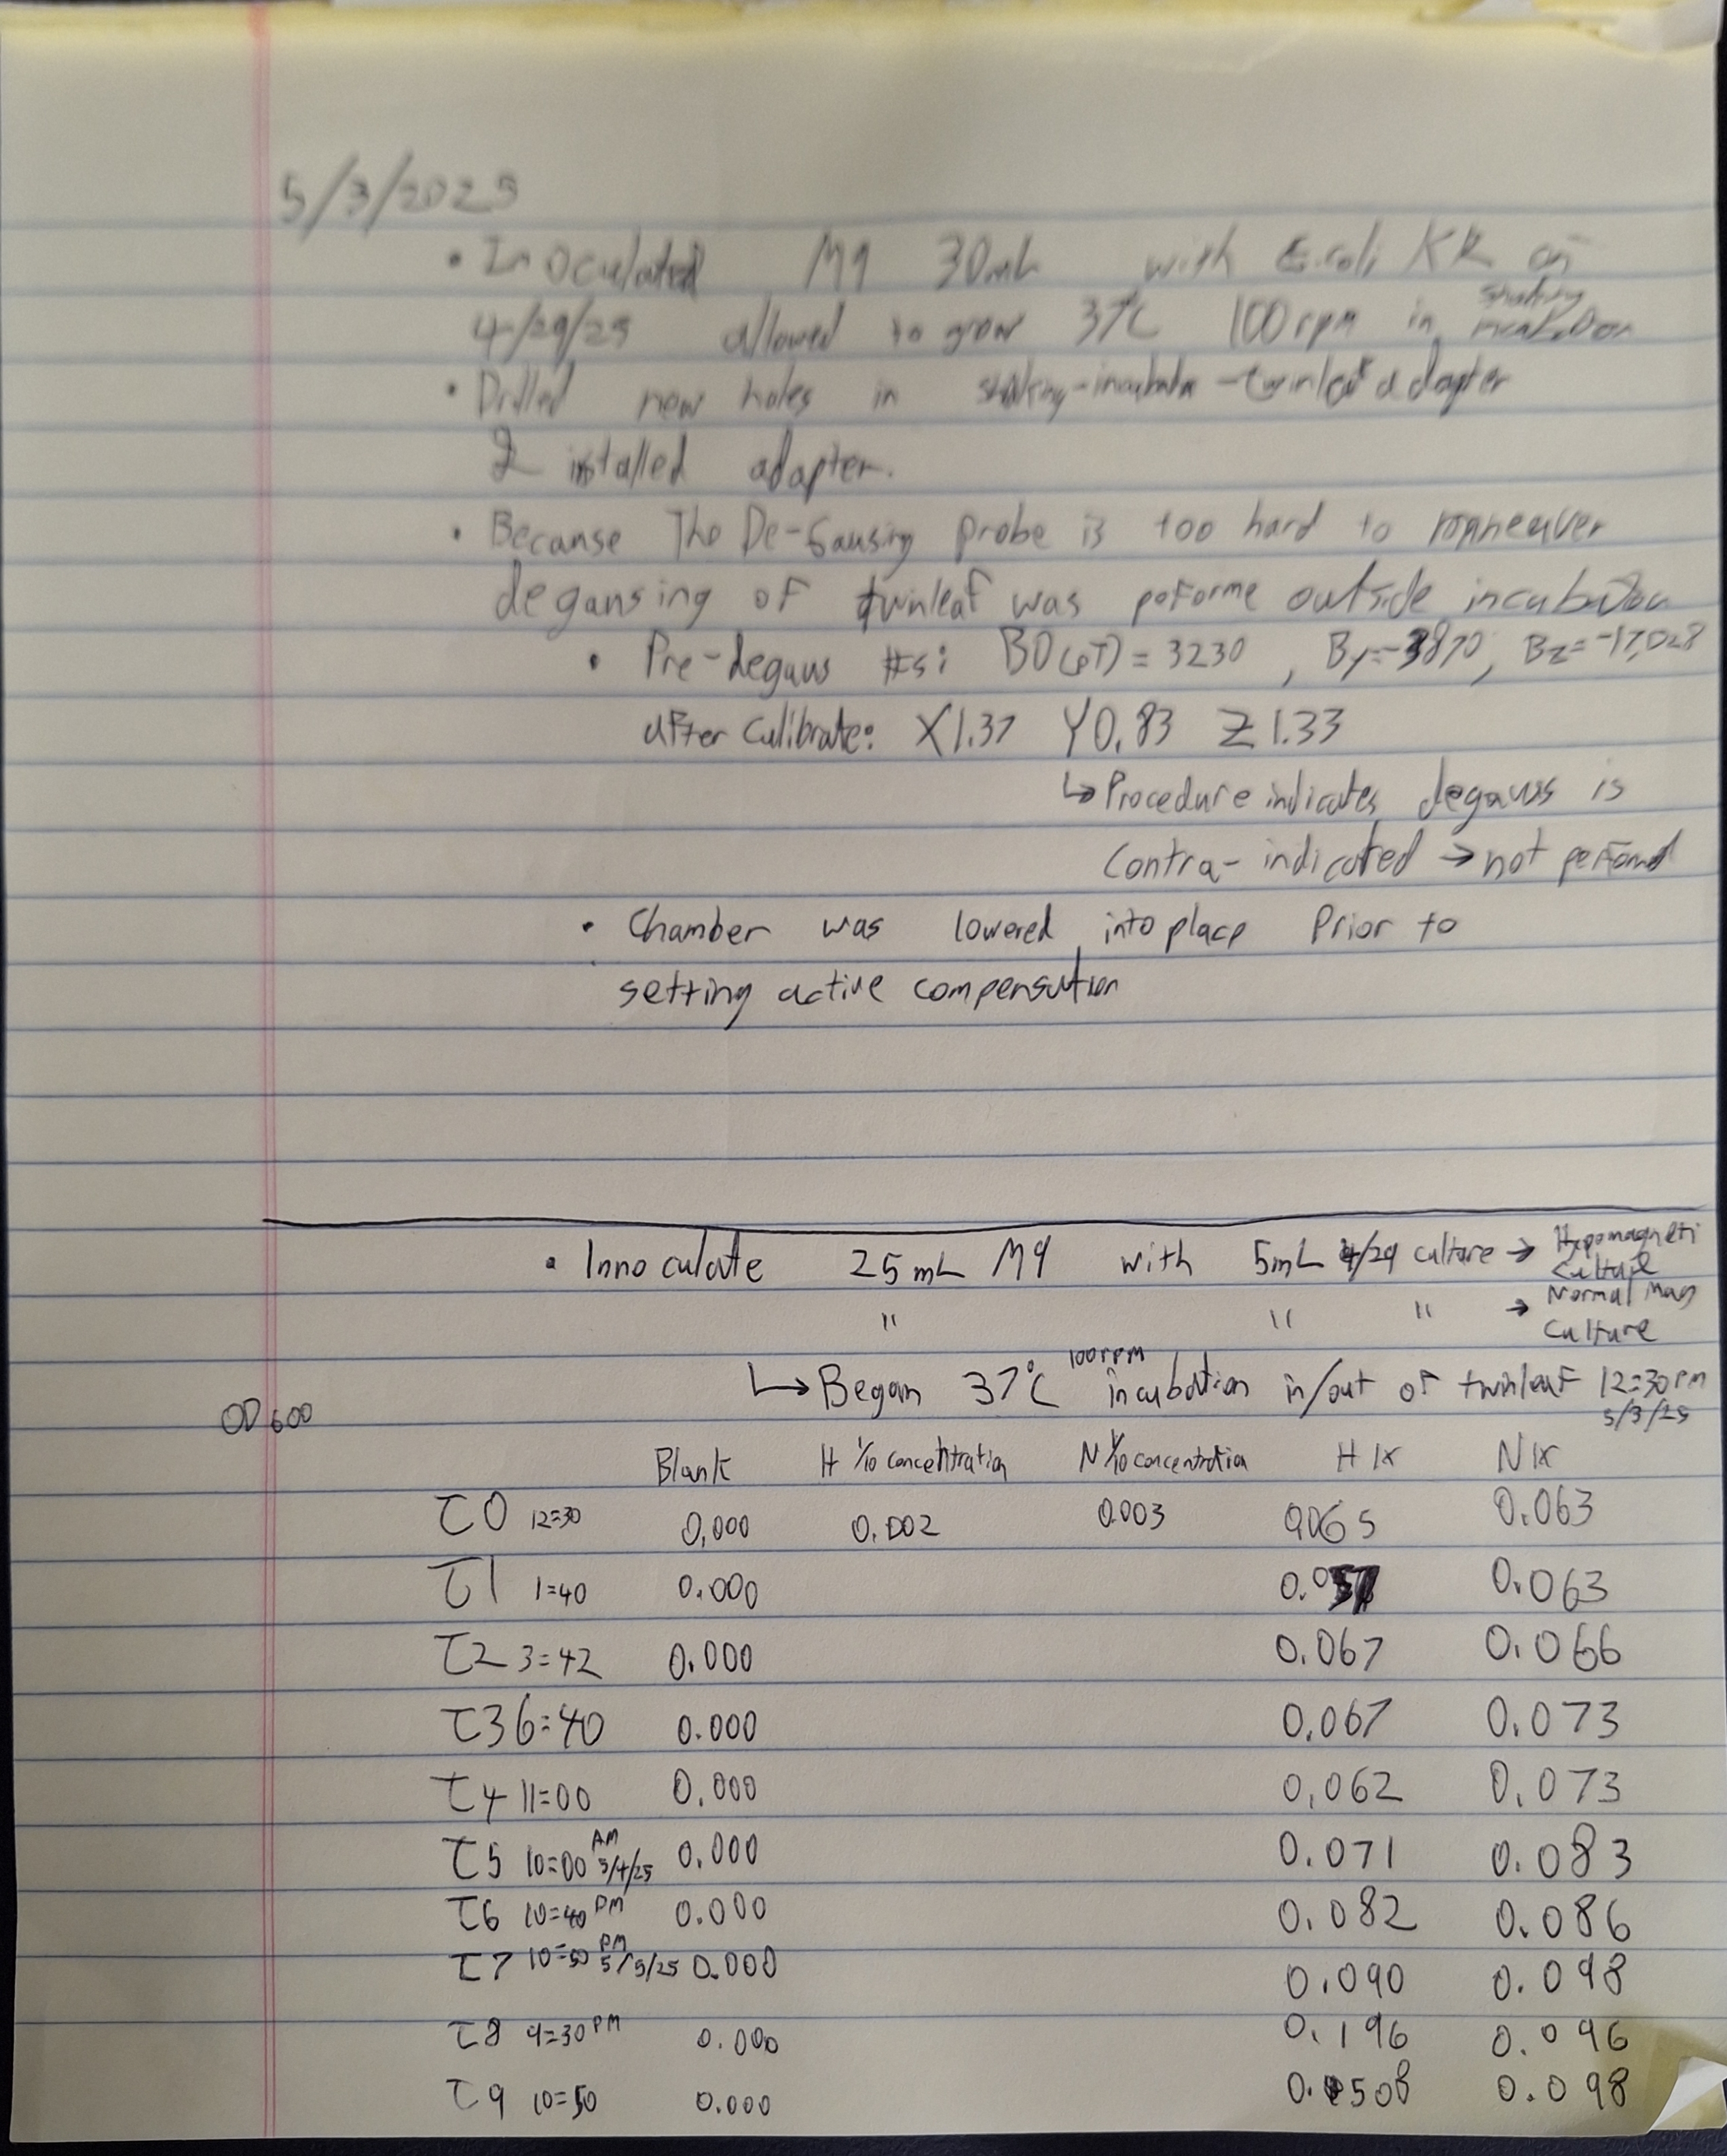 5/3/2025
• Inoculated M9 30mL with E.coli KR on
4/29/25 allowed to grow 37°C 100rpm in shaking incubation
• Drilled new holes in shaking-incubator-twinleaf adapter
& installed adapter.
• Because The De-Gausing probe is too hard to maneuver
degausing of twinleaf was poforme outside incubation
• Pre-degaus #s: B0(pT) = 3230 , By=-3870, Bz=-17,028
after Calibrate: X1.37 Y0.83 Z1.33
↳ Procedure indicates degauss is
Contra-indicated → not perfomd
• Chamber was lowered into place Prior to
setting active compensation
• Innoculate 25mL M9 with 5mL 4/29 culture → Hypomagneti Culture
" " " → Normal Mag Culture
↳ Began 37°C 100rpm incubation in/out of twinleaf 12:30pm 5/3/25
OD600
Blank H 1/10 concentration N 1/10 concentration H 1x N 1x
T0 12:30 0.000 0.002 0.003 0.065 0.063
T1 1:40 0.000 0.0 0.063
T2 3:42 0.000 0.067 0.066
T3 6:40 0.000 0.067 0.073
T4 11:00 0.000 0.062 0.073
T5 10:00 AM 5/4/25 0.000 0.071 0.083
T6 10:40 PM 0.000 0.082 0.086
T7 10:50 PM 5/5/25 0.000 0.090 0.098
T8 9:30 PM 0.000 0.196 0.096
T9 10:50 0.000 0.508 0.098